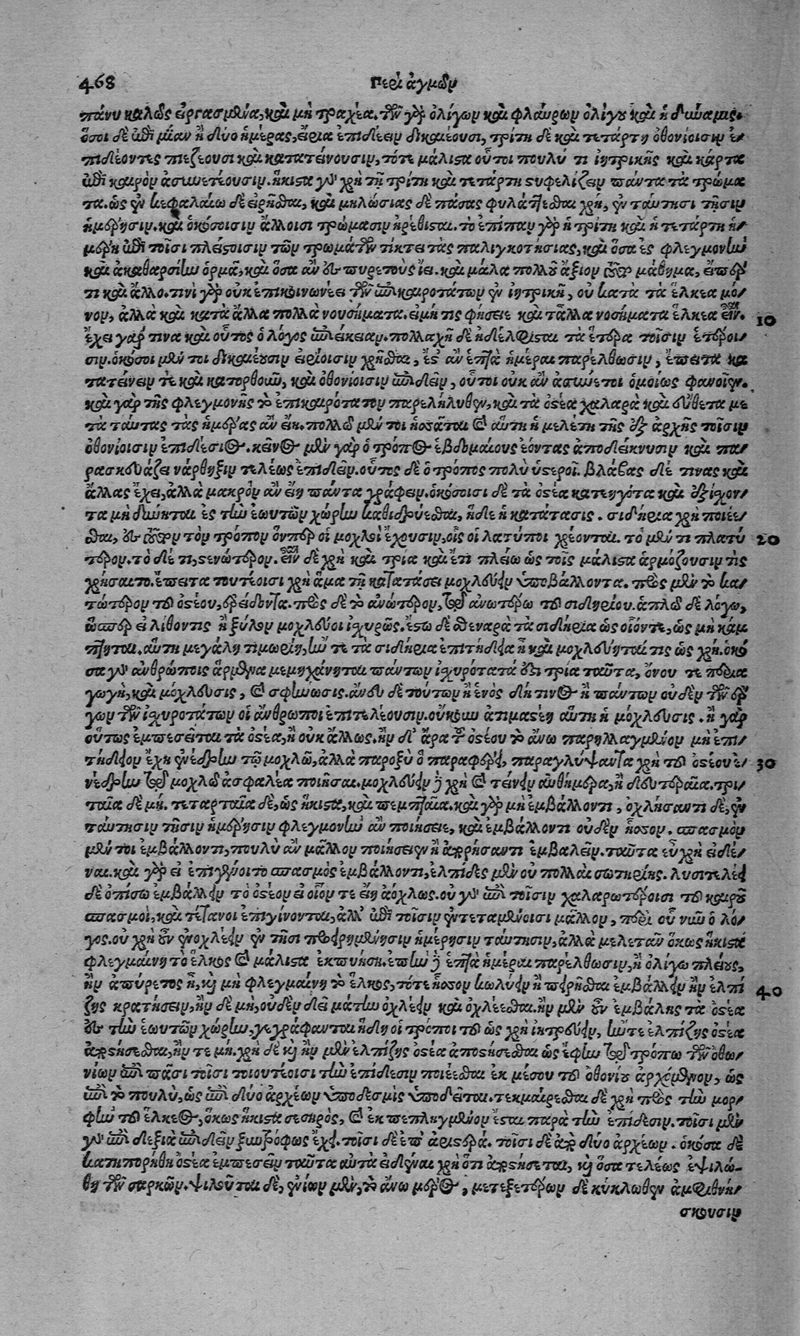 468 Περὶ ἀγμῶν
πάνυ καλῶς εἰργασμένα, καὶ μὴ τραχέα. τῶν γὰρ ὀλίγων καὶ φλαύρων ὀλίγη καὶ ἡ δύναμις.
ὅσοι δὲ ἐπὶ μίαν ἢ δύο ἡμέρας, εἴρια ἐπιδέειν δικαιέουσι, τρίτη δὲ καὶ τετάρτη ὀθονίοισιν ἐ-
πιδέοντες πιέζεουσι καὶ κατατένουσιν, τότε μάλιστα οὗτοι πουλύ τι ἰητρικῆς καὶ κάρτα
ἐπὶ καιρὸν ἀσυνετέουσιν. ἥκιστα γὰρ χρὴ τῇ τρίτη καὶ τετάρτη στυφελίζειν πάντα τὰ τρώμα
τα. ὡς ἐν κεφαλαίω δὲ εἰρῆσθαι, καὶ μηλώσιας δὲ πάσας φυλάττεσθαι χρὴ, ἐν ταύτησι τῇσιν
ἡμέρησιν. καὶ ὁκόσοισιν ἄλλοισι τρώμασιν ἠρέθισται. τὸ ἐπίπαν γὰρ ἡ τρίτη καὶ ἡ τετάρτη ἡ-
μέρη ἐπὶ τοῖσι πλείστοισιν τῶν τρωμάτων τίκτει τὰς παλιγκοτησίας, καὶ ὅσα ἐς φλεγμονὴν
καὶ ἀκαθαρσίην ὁρμᾶ, καὶ ὅσα ἂν ἐκ πυρετοὺς ἴει. καὶ μάλα πολλοῦ ἄξιον τοῦτο μάθημα, εἴπερ
τι καὶ ἄλλο. τινὶ γὰρ οὐκ ἐπικοινωνέει τῶν ἐπικαιροτάτων ἐν ἰητρικῇ, οὐ κατὰ τὰ ἕλκεα μό-
νον, ἀλλὰ καὶ κατὰ ἄλλα πολλὰ νουσήματα. εἰ μή τις φήσειε καὶ τἆλλα νοσήματα ἕλκεα εἶναι. 10
ἔχει γάρ τινα καὶ οὗτος ὁ λόγος ἐπιείκειαν. πολλαχῇ δὲ ἠδέλφισται τὰ ἕτερα τοῖσιν ἑτέροι-
σιν. ὁκόσοι μέν τοι δικαιεῦσιν εἰρίοισιν χρῆσθαι, ἔστ' ἂν ἑπτὰ ἡμέραι παρέλθωσιν, ἔπειτα κα
τατένειν τε καὶ κατορθοῦν, καὶ ὀθονίοισιν ἐπιδεῖν, οὗτοι οὐκ ἂν ἀσύνετοι ὁμοίως φανοῖεν.
καὶ γὰρ τῆς φλεγμονῆς τὸ ἐπικαιρότατον παρελήλυθεν, καὶ τὰ ὀστέα χαλαρὰ καὶ εὔθετα με
τὰ ταύτας τὰς ἡμέρας ἂν εἴη. πολλῷ μέν τοι ἡσσᾶται καὶ αὕτη ἡ μελέτη τῆς ἐξ ἀρχῆς τοῖσιν
ὀθονίοισιν ἐπιδέσιος. κεῖνος μὲν γὰρ ὁ τρόπος ἑβδομαίους ἐόντας ἀποδείκνυσιν καὶ πα-
ρασκευάζει νάρθηξιν τελέως ἐπιδεῖν. οὗτος δὲ ὁ τρόπος πολὺ ὑστεροῖ. βλάβας δέ τινας καὶ
ἄλλας ἔχει, ἀλλὰ μακρὸν ἂν εἴη πάντα γράφειν. ὁκόσοισι δὲ τὰ ὀστέα κατηγότα καὶ ἐξίχον-
τα μὴ δύνηται ἐς τὴν ἑωυτῶν χώρην καθιδρύεσθαι, ἥδε ἡ κατάτασις. σιδήρια χρὴ ποιέε-
σθαι, ἐς τοῦτον τὸν τρόπον ὅνπερ οἱ μοχλοὶ ἔχουσιν, οἷς οἱ λατύποι χρέονται. τὸ μέν τι πλατύ 20
τερον. τὸ δέ τι, στενώτερον. εἶναι δὲ χρὴ καὶ τρία καὶ ἔτι πλείω ὡς τοῖς μάλιστα ἁρμόζουσίν τις
χρήσαιτο. ἔπειτα τουτέοισι χρὴ ἅμα τῇ κατατάσει μοχλεύειν ὑποβάλλοντα. πρὸς μὲν τὸ κα-
τώτερον τοῦ ὀστέου, ἐρείδοντα. πρὸς δὲ τὸ ἀνώτερον, τῷ ἀνωτέρω τοῦ σιδηρίου. ἁπλῷ δὲ λόγω,
ὥσπερ εἰ λίθον τις ἢ ξύλον μοχλεύοι ἰσχυρῶς. ἔστω δὲ σθεναρὰ τὰ σιδήρια ὡς οἷόν τε, ὡς μὴ κάμ
πτηται. αὕτη μεγάλη τιμωρίη, ἤν τε τὰ σιδήρια ἐπιτήδεια ᾖ καὶ μοχλεύηταί τις ὡς χρή. ὁκό
σα γὰρ ἀνθρώποις ἄρμενα μεμηχάνηται πάντων ἰσχυρότατά ἐστι τρία ταῦτα, ὄνου τε περια
γωγὴ, καὶ μόχλευσις, καὶ σφήνωσις. ἄνευ δὲ τούτων ἢ ἑνὸς δή τινος ἢ πάντων οὐδὲν τῶν ἔρ
γων τῶν ἰσχυροτάτων οἱ ἄνθρωποι ἐπιτελέουσιν. οὔκουν ἀτιμαστέη αὕτη ἡ μόχλευσις. ἢ γὰρ
οὕτως ἐμπεσεῖται τὰ ὀστέα, ἢ οὐκ ἄλλως. ἢν δ' ἄρα τοῦ ὀστέου τὸ ἄνω παρηλλαγμένον μὴ ἐπι-
τήδειον ἔχῃ ἐνέδρην τῷ μοχλῷ, ἀλλὰ παροξὺ ὂ παραφέρῃ, παραγλύψαντα χρὴ τοῦ ὀστέου ἐ- 30
νέδρην τῷ μοχλῷ ἀσφαλέα ποιῆσαι. μοχλεύειν δὲ χρὴ καὶ τείνειν αὐθημέρα, ἢ δευτεραῖα. τρι-
ταῖα δὲ μή. τεταρταῖα δὲ, ὡς ἥκιστα, καὶ πεμπταῖα. καὶ γὰρ μὴ ἐμβάλλοντι, ὀχλήσαντι δὲ, ἐν
ταύτησιν τῇσιν ἡμέρησιν φλεγμονὴν ἂν ποιήσειε, καὶ ἐμβάλλοντι οὐδὲν ἧσσον. σπασμὸν
μέν τοι ἐμβάλλοντι, πουλὺ ἂν μᾶλλον ποιήσειεν ἢ ἀπρήσαντι ἐμβαλεῖν. ταῦτα εὖ χρὴ εἰδέ-
ναι. καὶ γὰρ εἰ ἐπιγένοιτο σπασμὸς ἐμβάλλοντι, ἐλπίδες μὲν οὐ πολλαὶ σωτηρίης. λυσιτελέει
δὲ ὀπίσω ἐμβάλλειν τὸ ὀστέον εἰ οἷόν τε εἴη ἀόχλως. οὐ γὰρ ἐπὶ τοῖσιν χαλαρωτέροισι τοῦ καιροῦ
σπασμοὶ, καὶ τέτανοι ἐπιγίνονται, ἀλλ' ἐπὶ τοῖσιν ἐντεταμένοισι μᾶλλον, περὶ οὗ νῦν ὁ λό-
γος. οὐ χρὴ οὖν ἐνοχλέειν ἐν τῇσι προειρημένῃσιν ἡμέρῃσιν ταύτῃσιν, ἀλλὰ μελετᾶν ὅκως ἥκιστα
φλεγμαίνῃ τὸ ἕλκος καὶ μάλιστα ἐκπυήσῃ. ἐπὴν δὲ ἑπτὰ ἡμέραι παρέλθωσιν, ἢ ὀλίγω πλείους,
ἢν ἀπύρετος ᾖ, καὶ μὴ φλεγμαίνῃ τὸ ἕλκος, τότε ἧσσον κωλύει πειρῆσθαι ἐμβάλλειν ἢν ἐλπί
ζῃς κρατήσειν, ἢν δὲ μὴ, οὐδὲν δεῖ μάτην ὀχλέειν καὶ ὀχλέεσθαι. ἢν μὲν οὖν ἐμβάλῃς τὰ ὀστέα 40
ἐς τὴν ἑωυτῶν χώρην, γεγράφαται ἤδη οἱ τρόποι τοῦ ὡς χρὴ ἰητρεύειν, ἤν τε ἐλπίζῃς ὀστέα
ἀποστήσεσθαι, ἤν τε μή. χρὴ δὲ καὶ ἢν μὲν ἐλπίζῃς ὀστέα ἀποστήσεσθαι ὡς ἔφην τῷ τρόπω τῶν ὀθο-
νίων ἐπὶ πᾶσι τοῖσι τοιουτέοισι τὴν ἐπίδεσιν ποιέεσθαι ἐκ μέσου τοῦ ὀθονίου ἀρχόμενον, ὡς
ἐπὶ τὸ πουλὺ, ὡς ἀπὸ δύο ἀρχέων ὑποδεσμὶς ὑποδέεται. τεκμαίρεσθαι δὲ χρὴ πρὸς τὴν μορ-
φὴν τοῦ ἕλκεος, ὅκως ἥκιστα σεσηρὸς, καὶ ἐκπεπληγμένον ἔσται παρὰ τὴν ἐπίδεσιν. τοῖσι μὲν
γὰρ ἐπὶ δεξιὰ ἐπιδεῖν ξυντρόφως ἔχει. τοῖσι δὲ ἐπ' ἀριστερά. τοῖσι δὲ ἀπὸ δύο ἀρχέων. ὁκόσα δὲ
κατηπορήθη ὀστέα ἐμπεσεῖν ταῦτα αὐτὰ εἰδέναι χρὴ ὅτι ἀποστήσεται, καὶ ὅσα τελέως ἐψιλώ-
θη τῶν σαρκῶν. ψιλοῦται δὲ, ἐνίων μὲν, τὸ ἄνω μέρος, μετεξετέρων δὲ κύκλωθεν ἀμφιθνή-
σκουσιν